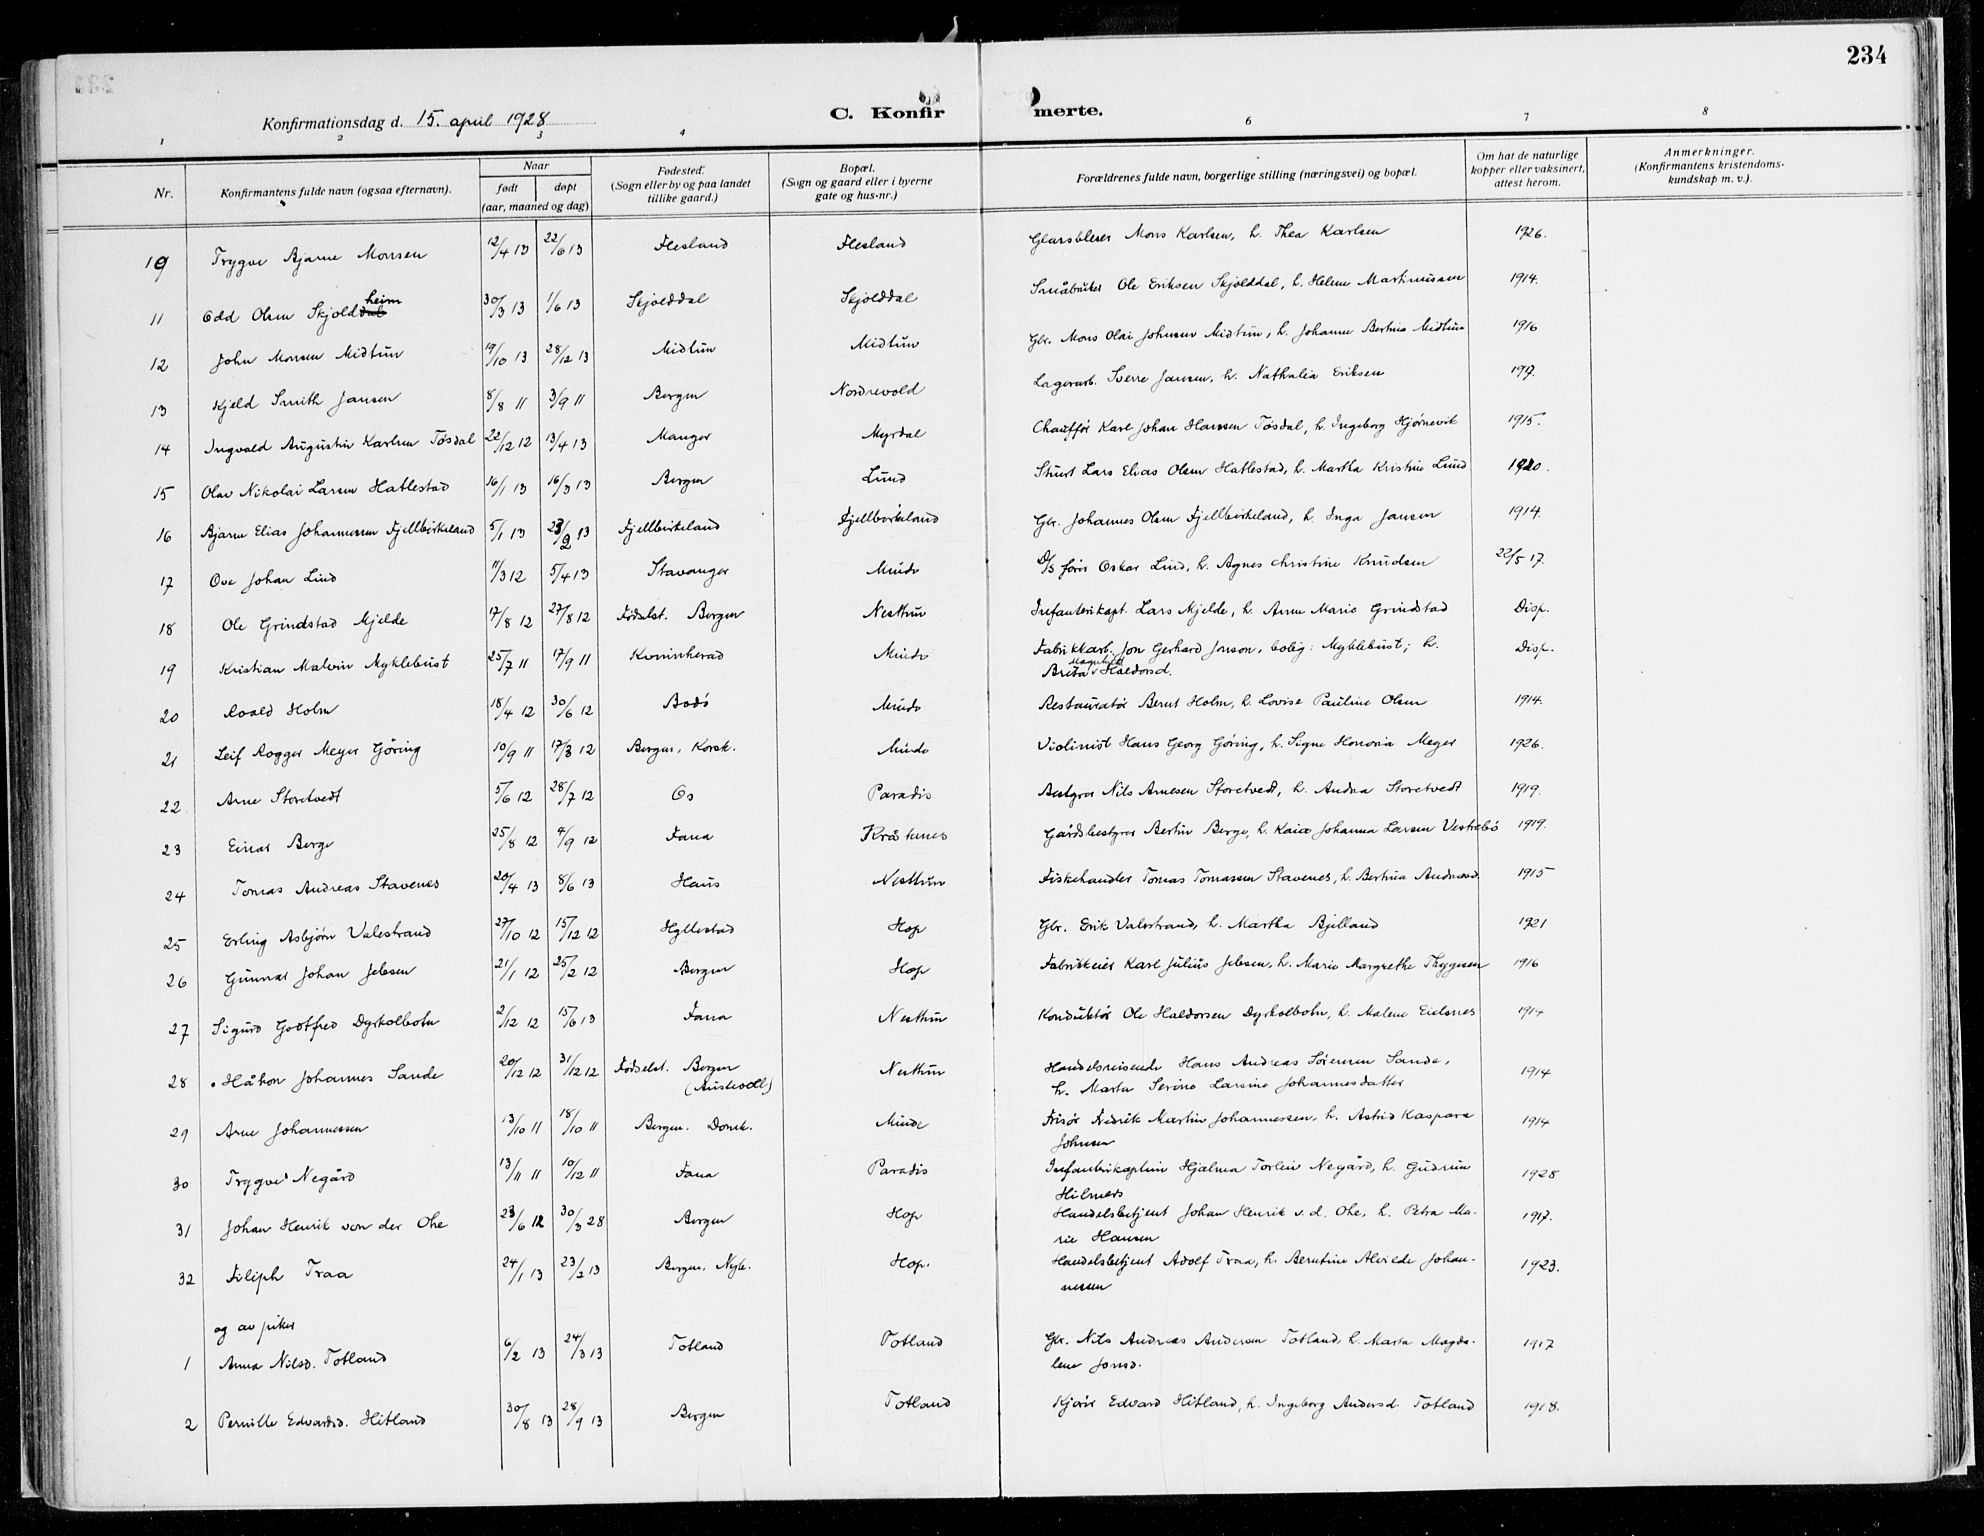 234
Konfirmationsdag d. 15. april 1928
C. Konfirmerte.
1 2 3 4 6 7 8
Nr. Konfirmantens fulde navn (ogsaa efternavn). Naar født døpt (aar, maaned og dag) Fødested. (Sogn eller by og paa landet tillike gaard.) Bopæl. (Sogn og gaard eller i byerne gate og hus-nr.) Forældrenes fulde navn, borgerlige stilling (næringsvei) og bopæl. Om hat de naturlige kopper eller vaksinert, attest herom. Anmerkninger. (Konfirmantens kristendoms-kundskap m. v.).
10 Trygve Bjarne Monsen 12/4 13 22/6 13 Flesland Flesland Mons Karlsen, h. Thea Karlsen 1926.
11 Odd Olsen Skjolddal heim 30/3 13 1/6 13 Skjolddal Skjolddal Småbruker Ole Eriksen Skjolddal, h. Helene Martinussen 1914.
12 John Monsen Midtun 19/10 13 28/12 13 Midtun Midtun Gbr. Mons Olai Johnsen Midtun, h. Johanne Bertina Midtun 1916
13 Kjeld Smith Jansen 8/8 11 3/9 11 Bergen Nordrevold Lagerarb. Sverre Jansen, h. Nathalia Eriksen 1917.
14 Ingvald Augustin Karlsen Tøsdal 22/12 12 13/4 13 Manger Myrdal Chauffør Karl Johan Hansen Tøsdal, h. Ingeborg Hjørnevik 1915.
15 Olav Nikolai Larsen Hatlestad 16/1 13 16/3 13 Bergen Lund Stuert Lars Elias Olsen Hatlestad, h. Martha Kristine Lund 1920.
16 Bjarne Elias Johannessen Fjellbirkeland 5/1 13 23/2 13 Fjellbirkeland Fjellbirkeland Gbr. Johannes Olsen Fjellbirkeland, h. Inga Jansen 1914.
17 Ove Johan Lind 11/3 12 5/4 13 Stavanger Minde D/S fører Oskar Lind, h. Agnes Christine Knudsen 22/5 17.
18 Ole Grindstad Mjelde 17/8 12 27/8 12 Fødselst. Bergen Nesttun Infanterikapt. Lars Mjelde, h. Anne Marie Grindstad Disp.
19 Kristian Malvin Myklebust 25/7 11 17/9 11 Kvinnherad Minde Fabrikkarb. Jon Gerhard Jonson, bolig: Myklebust; h. Disp.
Brita Magnhild Haldorsd.
20 Roald Holm 18/4 12 30/6 12 Bodø Minde Restauratør Bernt Holm, h. Lovise Pauline Olsen 1914.
21 Leif Rogger Meyer Göring 10/9 11 17/3 12 Bergen, Korsk. Minde Violinist Hans Georg Göring, h. Signe Honoria Meyer 1926.
22 Arne Storetvedt 5/6 12 28/7 12 Os Paradis Bestyrer Nils Arnesen Storetvedt, h. Andrea Storetvedt 1919.
23 Einar Berge 25/8 12 4/9 12 Fana Kråkenes Gårdsbestyrer Bertin Berge, h. Kaia Johanna Larsen Vestrebø 1919.
24 Tomas Andreas Stavenes 20/4 13 8/6 13 Haus Nesttun Fiskehandler Tomas Tomassen Stavenes, h. Bertina Andreasd. 1915
25 Erling Asbjørn Valestrand 27/10 12 15/12 12 Hyllestad Hop Gbr. Erik Valestrand, h. Martha Bjelland 1921
26 Gunnar Johan Jebsen 21/1 12 25/2 12 Bergen Hop Fabrikkeier Karl Julius Jebsen, h. Marie Margrethe Thygesen 1916
27 Sigurd Godtfred Dyrkolbotn 2/12 12 15/6 13 Fana Nesttun Konduktør Ole Haldorsen Dyrkolbotn, h. Malene Eidsnes 1914
28 Håkon Johannes Sande 20/12 12 31/12 12 Fødselst. Bergen Nesttun Handelsreisende Hans Andreas Sørensen Sande, 1914
(Austevoll) h. Marta Serine Larsine Johannesdatter
29 Arne Johannessen 13/10 11 18/10 11 Bergen. Domk. Minde Frisør Fredrik Martin Johannessen, h. Astrid Kaspara 1914
Johnsen
30 Trygve Negård 13/11 11 10/12 11 Fana Paradis Infanterikaptein Hjalmar Torlein Negård, h. Gudrun 1928
Hilmers
31 Johan Henrik von der Ohe 23/6 12 30/3 28 Bergen Hop Handelsbetjent Johan Henrik v. d. Ohe, h. Petra Ma- 1917.
rie Hansen
32 Filiph Traa 24/1 13 23/2 13 Bergen, Nyk. Hop. Handelsbetjent Adolf Traa, h. Berntine Alvilde Johan- 1923.
nessen
og av piker
1 Anna Nilsd. Totland 6/2 13 24/3 13 Totland Totland Gbr. Nils Andreas Andersen Totland, h. Marta Magda- 1917
lene Jonsd.
2 Pernille Edvardsd. Hitland 30/8 13 28/9 13 Bergen Totland Kjører Edvard Hitland, h. Ingeborg Andersd. Totland 1918.